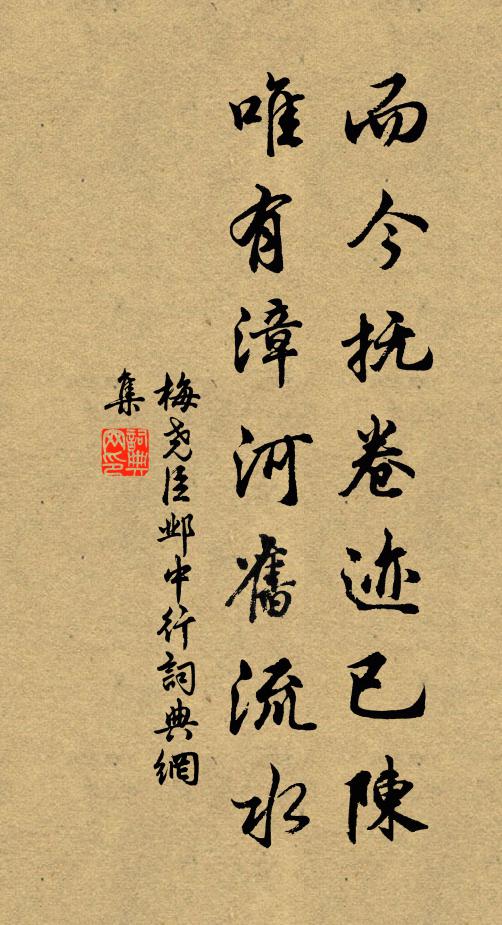 而今抚卷迹已陳
唯有漳河舊流水
梅尧臣邺中行詞典網
集
詞典
网印